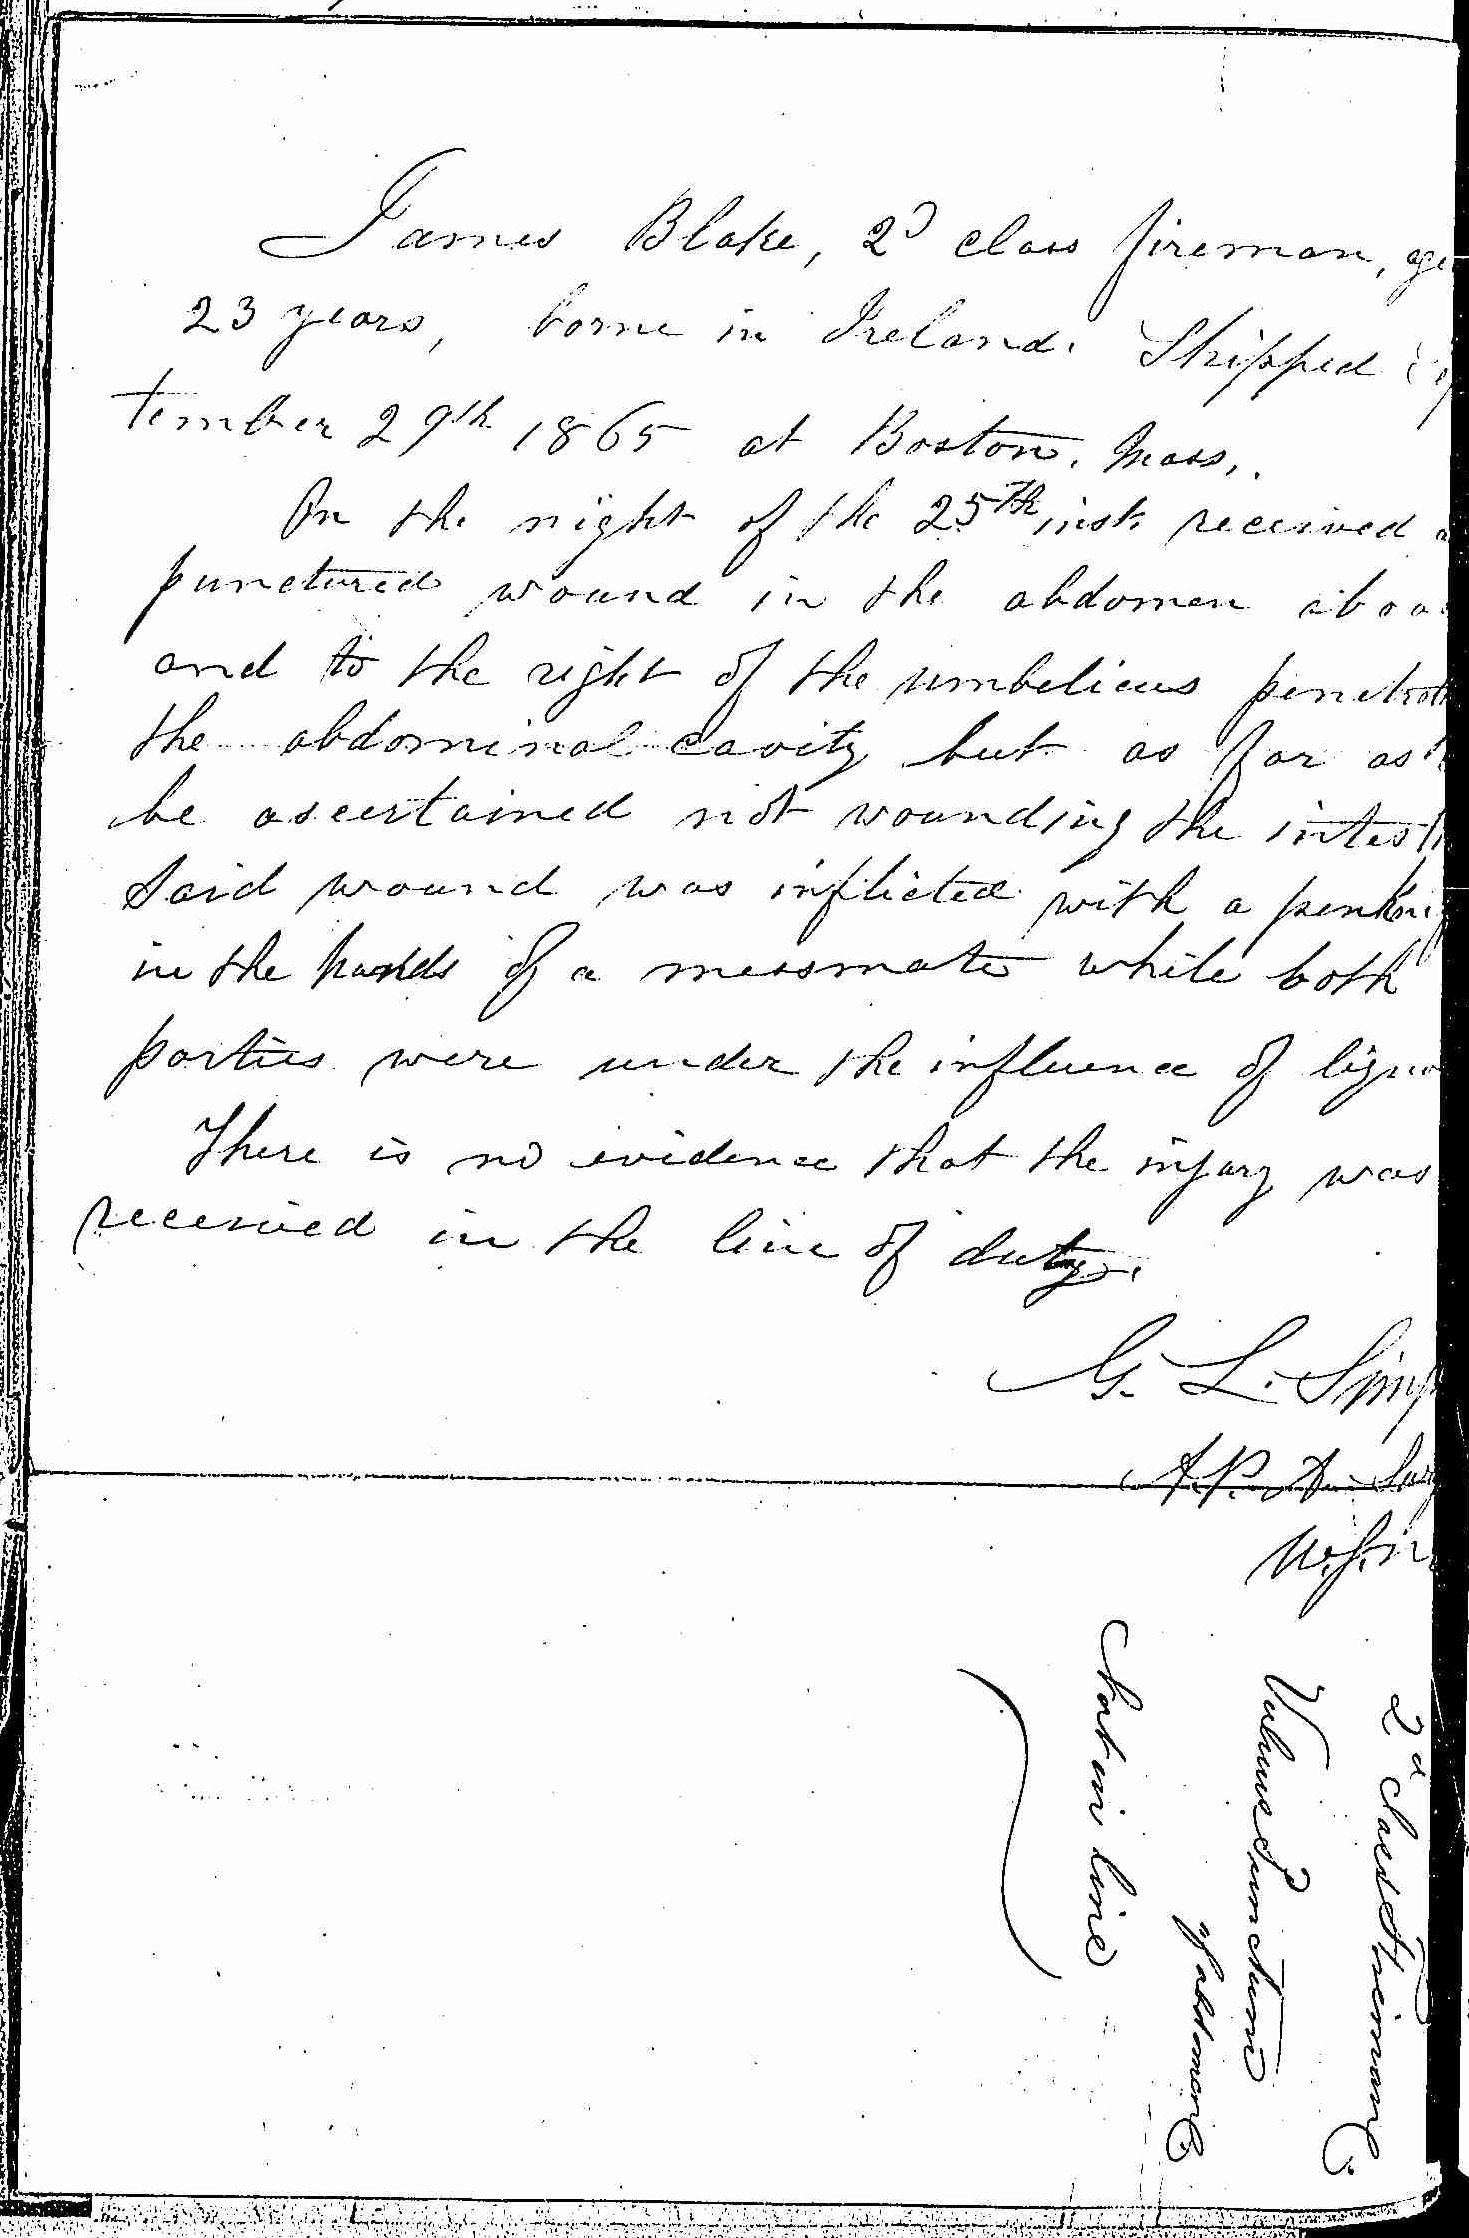 James Blake, 2d class fireman, age
23 years, borne in Ireland. Shipped Sep
tember 29th 1865 at Boston, Mass,.
On the night of the 25th inst. received a
punctured wound in the abdomen abov
and to the right of the umbelicus penetrat
the abdominal cavity but as far as
be ascertained not wounding the intesti
Said wound was inflicted with a penknif
in the hands of a messmate while both
parties were under the influence of liquo
There is no evidence that the injury was
received in the line of duty.
G. L. Simp
A. P. A. Surg
U.S.N.
2d Class Fireman
Vulnus Punctum
of abdomen
Not in line